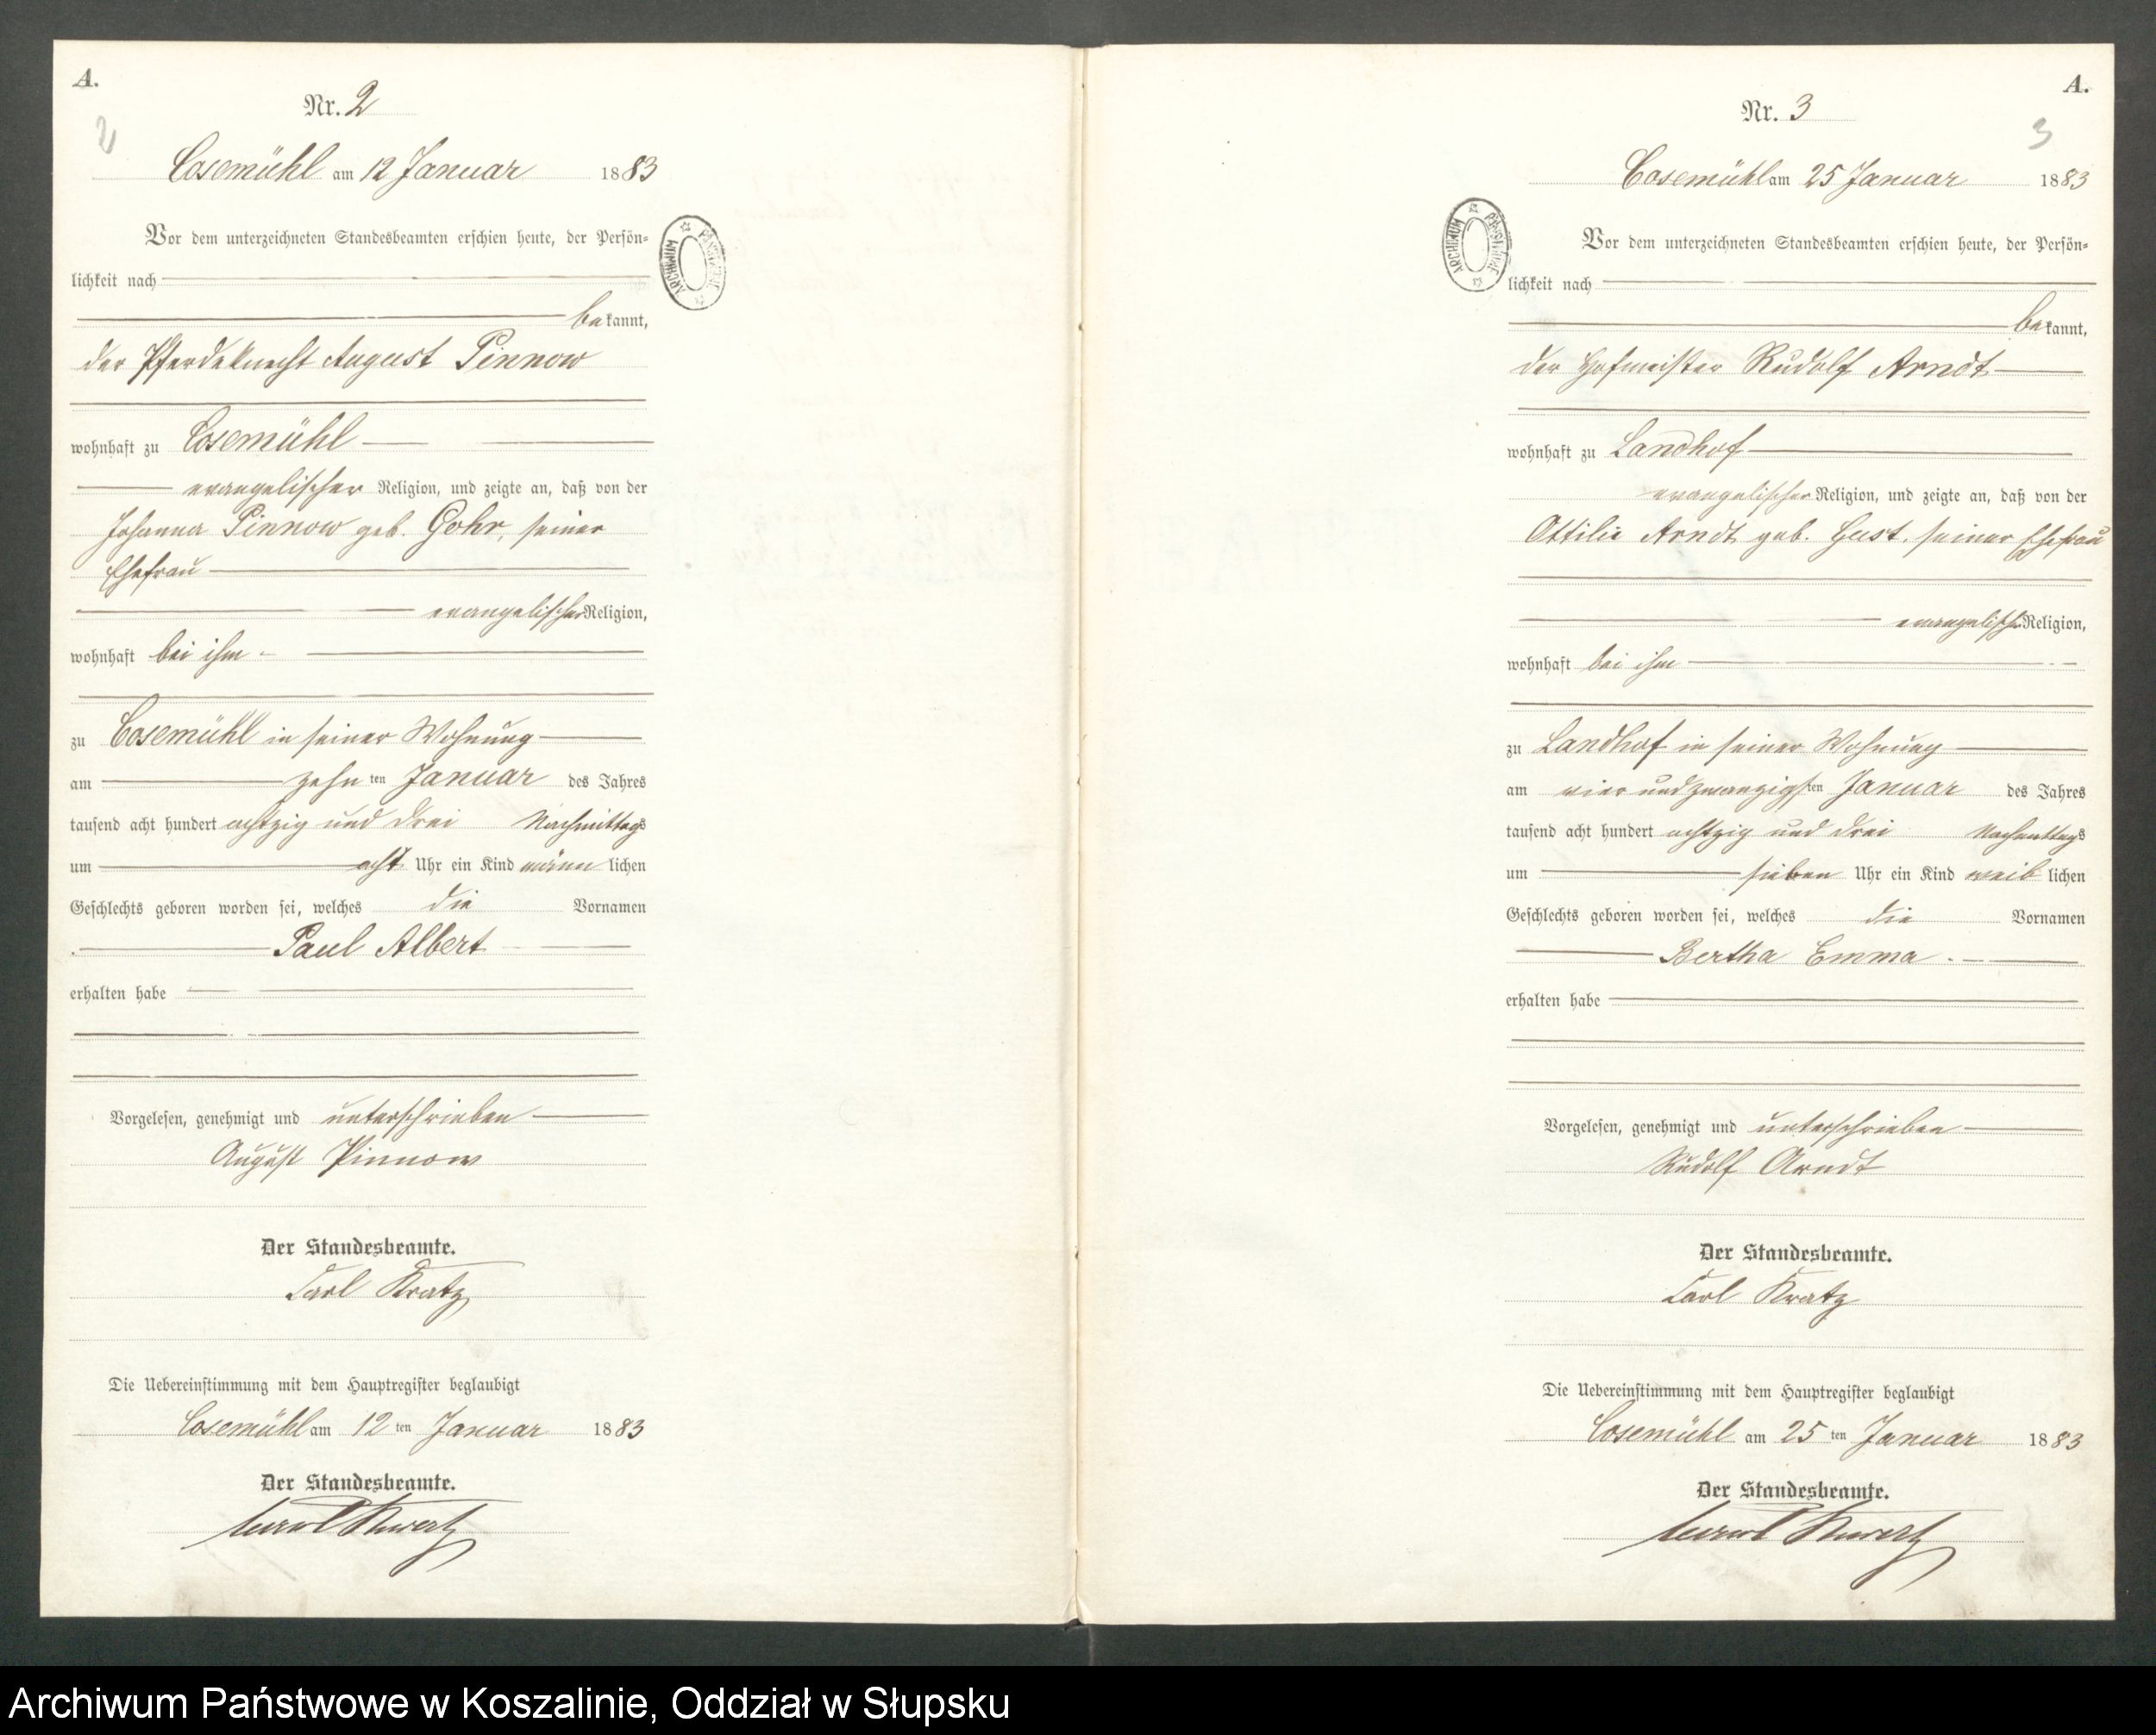 A.
Nr. 2
2
Cosemühl am 12 Januar 1883
Vor dem unterzeichneten Standesbeamten erschien heute, der Persön-
lichkeit nach
bekannt,
der Pferdeknecht August Pinnow
wohnhaft zu Cosemühl
evangelischer Religion, und zeigte an, daß von der
Johanna Pinnow geb. Gohr, seiner
Ehefrau
evangelischer Religion,
wohnhaft bei ihm
zu Cosemühl in seiner Wohnung
am zehn ten Januar des Jahres
tausend acht hundert achtzig und drei Nachmittags
um acht Uhr ein Kind männlichen
Geschlechts geboren worden sei, welches die Vornamen
Paul Albert
erhalten habe
Vorgelesen, genehmigt und unterschrieben
August Pinnow
Der Standesbeamte.
Carl Kratz
Die Uebereinstimmung mit dem Hauptregister beglaubigt
Cosemühl am 12 ten Januar 1883
Der Standesbeamte.
Carl Kratz
ARCHIWUM PAŃSTWOWE
A.
Nr. 3
3
Cosemühl am 25 Januar 1883
ARCHIWUM PAŃSTWOWE
Vor dem unterzeichneten Standesbeamten erschien heute, der Persön-
lichkeit nach
bekannt,
der Hofmeister Rudolf Arndt
wohnhaft zu Landhof
evangelischer Religion, und zeigte an, daß von der
Ottilie Arndt geb. Gust, seiner Ehefrau
evangelischer Religion,
wohnhaft bei ihm
zu Landhof in seiner Wohnung
am vier und zwanzigsten Januar des Jahres
tausend acht hundert achtzig und drei Nachmittags
um sieben Uhr ein Kind weiblichen
Geschlechts geboren worden sei, welches die Vornamen
Bertha Emma
erhalten habe
Vorgelesen, genehmigt und unterschrieben
Rudolf Arndt
Der Standesbeamte.
Carl Kratz
Die Uebereinstimmung mit dem Hauptregister beglaubigt
Cosemühl am 25 ten Januar 1883
Der Standesbeamte.
Carl Kratz
Archiwum Państwowe w Koszalinie, Oddział w Słupsku